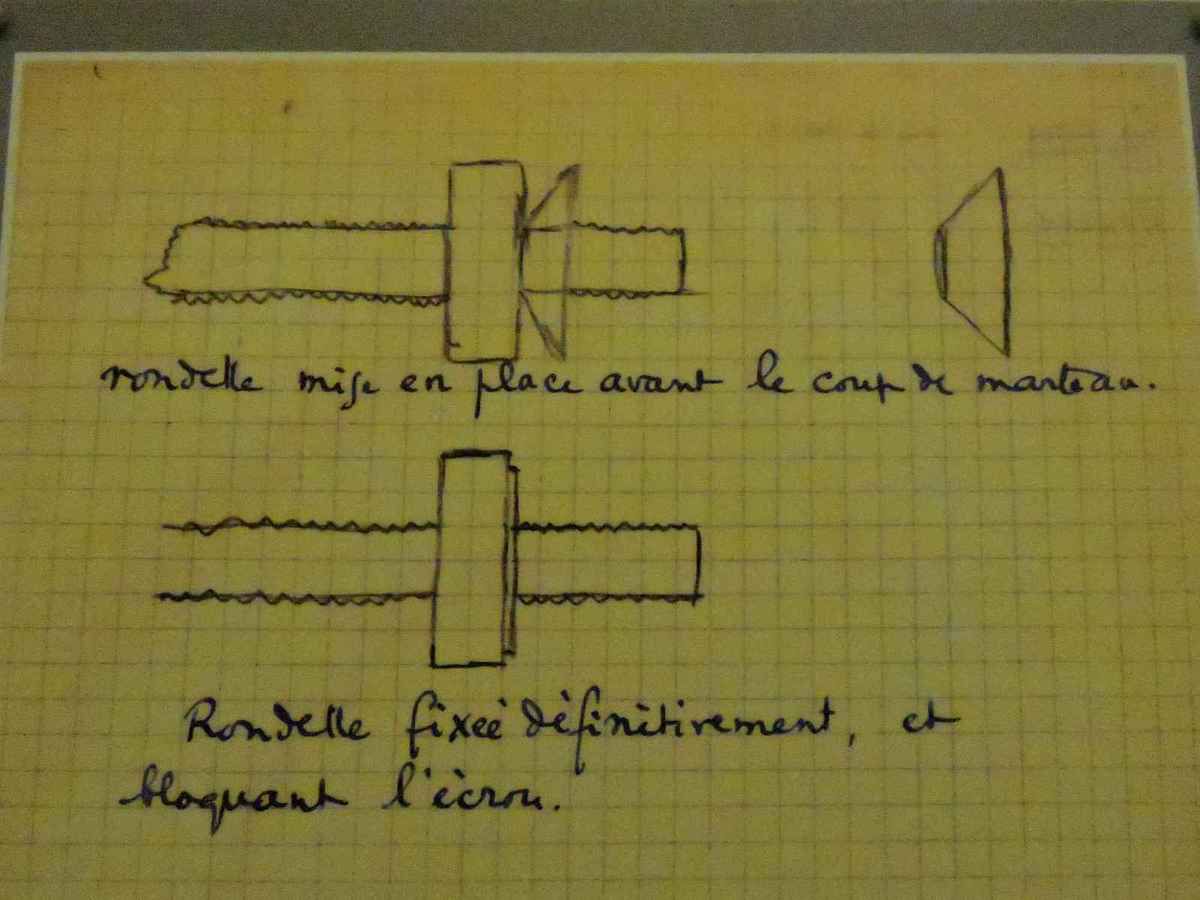 rondelle mise en place avant le coup de marteau.
Rondelle fixée définitivement, et
bloquant l'écrou.